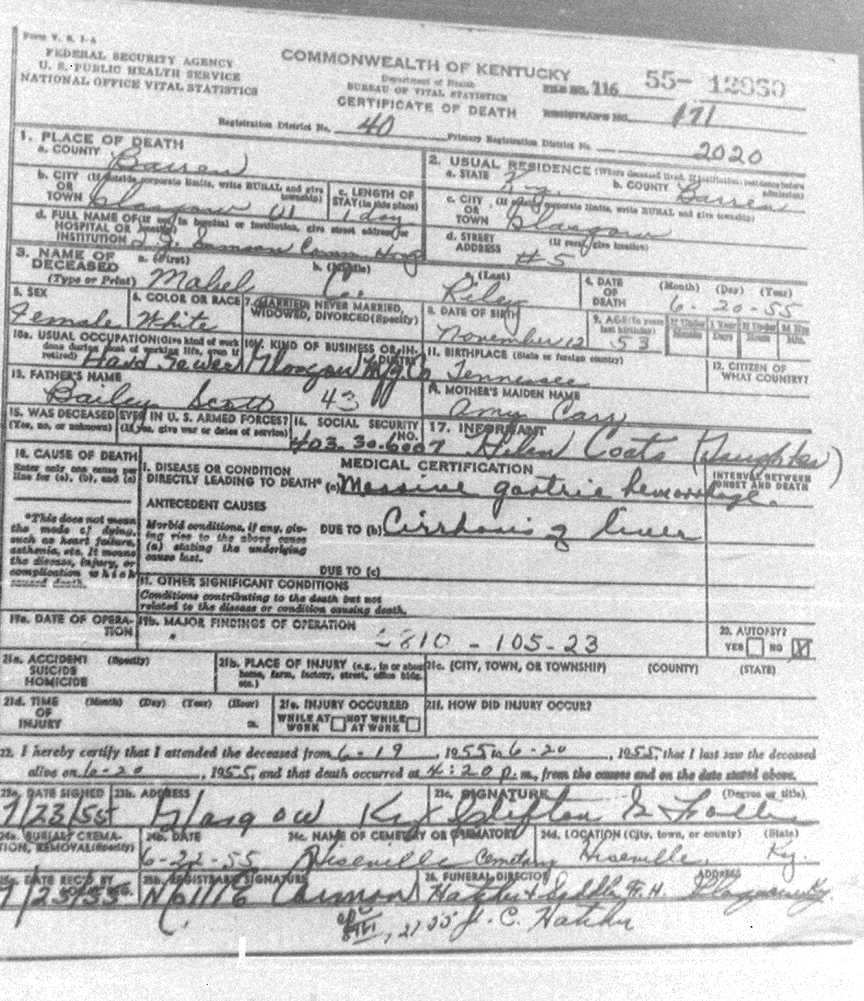 Form V. S. 1-A
FEDERAL SECURITY AGENCY
U. S. PUBLIC HEALTH SERVICE
NATIONAL OFFICE VITAL STATISTICS
COMMONWEALTH OF KENTUCKY
Department of Health
BUREAU OF VITAL STATISTICS
CERTIFICATE OF DEATH
FILE NO. 116 55-
REGISTRAR'S NO. 171
Registration District No. 40 Primary Registration District No. 2020
1. PLACE OF DEATH
a. COUNTY Barren
b. CITY (If outside corporate limits, write RURAL and give township) OR TOWN Glasgow
c. LENGTH OF STAY (in this place) 1 day
d. FULL NAME OF (If not in hospital or institution, give street address or location) HOSPITAL OR INSTITUTION T. J. Samson Comm. Hosp
2. USUAL RESIDENCE (Where deceased lived. If institution: residence before admission)
a. STATE Ky. b. COUNTY Barren
c. CITY (If outside corporate limits, write RURAL and give township) OR TOWN Glasgow
d. STREET ADDRESS (If rural, give location) #5
3. NAME OF DECEASED (Type or Print) a. (First) Mabel b. (Middle) C. c. (Last) Riley
4. DATE OF DEATH (Month) (Day) (Year) 6-20-55
5. SEX Female
6. COLOR OR RACE White
7. MARRIED, NEVER MARRIED, WIDOWED, DIVORCED (Specify)
8. DATE OF BIRTH November 12
9. AGE (In years last birthday) 53 If Under 1 Year Months Days If Under 24 Hrs. Hours Min.
10a. USUAL OCCUPATION (Give kind of work done during most of working life, even if retired) Hand Sewer
10b. KIND OF BUSINESS OR INDUSTRY Glasgow Mfg Co
11. BIRTHPLACE (State or foreign country) Tennessee
12. CITIZEN OF WHAT COUNTRY?
13. FATHER'S NAME Bailey Scott 43
14. MOTHER'S MAIDEN NAME Amy Cary
15. WAS DECEASED EVER IN U. S. ARMED FORCES? (Yes, no, or unknown) (If yes, give war or dates of service)
16. SOCIAL SECURITY NO. 403-30-6007
17. INFORMANT Helen Coats (Daughter)
18. CAUSE OF DEATH
Enter only one cause per line for (a), (b), and (c)
MEDICAL CERTIFICATION
INTERVAL BETWEEN ONSET AND DEATH
I. DISEASE OR CONDITION DIRECTLY LEADING TO DEATH* (a) Massive gastric hemorrhage.
*This does not mean the mode of dying, such as heart failure, asthenia, etc. It means the disease, injury, or complication which caused death.
ANTECEDENT CAUSES
Morbid conditions, if any, giving rise to the above cause (a) stating the underlying cause last.
DUE TO (b) Cirrhosis of liver
DUE TO (c)
II. OTHER SIGNIFICANT CONDITIONS
Conditions contributing to the death but not related to the disease or condition causing death.
19a. DATE OF OPERATION
19b. MAJOR FINDINGS OF OPERATION
5810 - 105-23
20. AUTOPSY? YES NO X
21a. ACCIDENT SUICIDE HOMICIDE (Specify)
21b. PLACE OF INJURY (e.g., in or about home, farm, factory, street, office bldg. etc.)
21c. (CITY, TOWN, OR TOWNSHIP) (COUNTY) (STATE)
21d. TIME OF INJURY (Month) (Day) (Year) (Hour) m.
21e. INJURY OCCURRED WHILE AT WORK NOT WHILE AT WORK
21f. HOW DID INJURY OCCUR?
22. I hereby certify that I attended the deceased from 6-19, 1955 to 6-20, 1955, that I last saw the deceased
alive on 6-20, 1955, and that death occurred at 4:20 p.m., from the causes and on the date stated above.
23a. DATE SIGNED 7/23/55
23b. ADDRESS Glasgow Ky
23c. SIGNATURE (Degree or title) Clifton G
24a. BURIAL, CREMATION, REMOVAL (Specify)
24b. DATE 6-22-55
24c. NAME OF CEMETERY OR CREMATORY Hiseville Cemetery
24d. LOCATION (City, town, or county) (State) Hiseville, Ky.
25a. DATE REC'D BY LOCAL REG. 7/25/55
25b. REGISTRAR'S SIGNATURE
26. FUNERAL DIRECTOR Hatcher & Saddler F. H. ADDRESS Glasgow Ky.
J. C. Hatcher